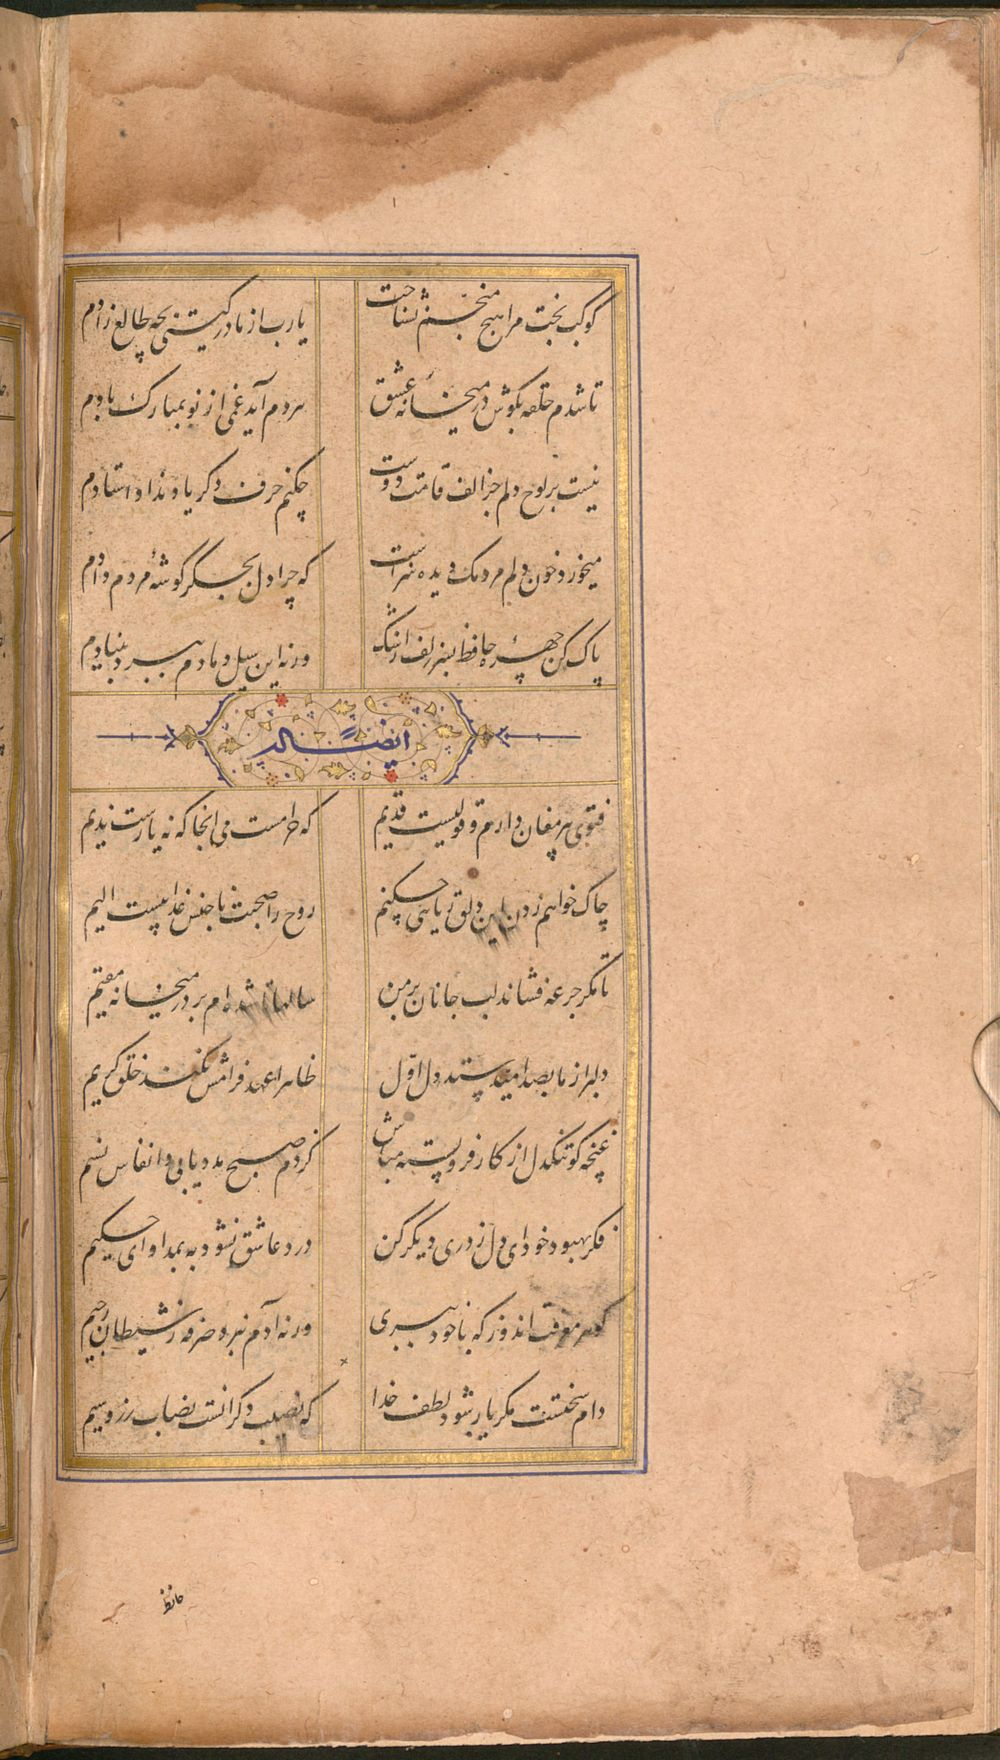 کوکب بخت مرا هیچ منجم نشناخت
یارب از مادر گیتی بچه طالع زادم
تا شدم حلقه بکوش در میخانهٔ عشق
هردم آید غمی از نو بمبارک بادم
نیست بر لوح دلم جز الف قامت دوست
چکنم حرف دکر یاد نداد استادم
میخورد خون دلم مردمک دیده سزاست
که چرا دل بجگر گوشهٔ مردم دادم
پاک کن چهرهٔ حافظ بسر زلف ز اشک
ورنه این سیل دمادم ببرد بنیادم
ایضاً له
فتوی پیر مغان دارم و قولیست قدیم
که حرامست می انجا که نه یارست ندیم
چاک خواهم زدن این دلق ریایی چکنم
روح را صحبت ناجنس عذابیست الیم
تا مکر جرعه فشاند لب جانان بر من
سالها شده ام بر در میخانه مقیم
دلبر از ما بصد امید ستد دل اول
ظاهرا عهد فرامش نکند خلق کریم
غنچه کو تنکدل از کار فروبسته مباش
کز دم صبح مدد یابی و انفاس نسیم
فکر بهبود خود ای دل ز دری دیکر کن
درد عاشق نشود به بمداوای حکیم
کوهر معرفت اندوز که با خود ببری
ورنه آدم نبرد صرفه ز شیطان رجیم
دام سختست مکر یار شود لطف خدا
که نصیب دکرانست نصاب زر و سیم
حافظ